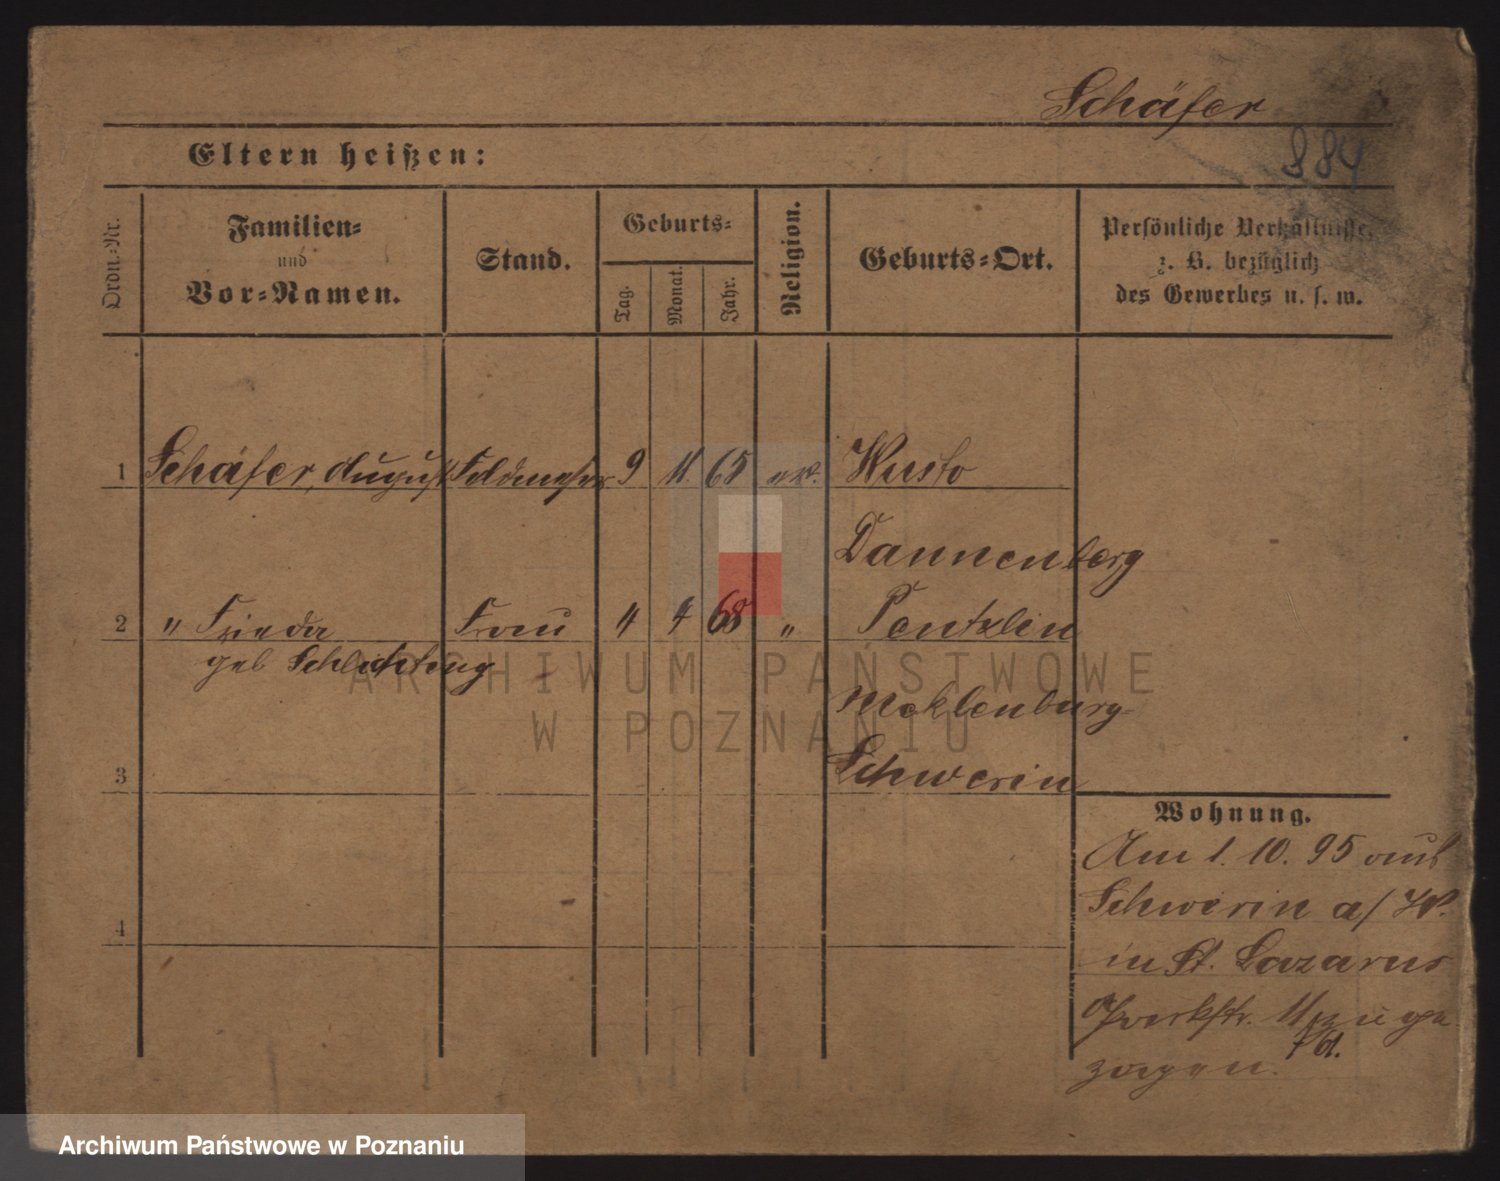 Schäfer
884
Eltern heißen:
Ordn.-Nr.
Familien-
und
Vor-Namen.
Stand.
Geburts-
Tag.
Monat.
Jahr.
Religion.
Geburts-Ort.
Persönliche Verhältnisse,
z. B. bezüglich
des Gewerbes u. s. w.
1 Schäfer, August Feldmesser 9 11. 65 ev. Wusto
Dannenberg
2 " Frieda Frau 4 4 68 " Pentzlin
geb Schlichting
Mecklenburg
Schwerin
3
4
Wohnung.
Am 1. 10. 95 aus
Schwerin a/W.
in St. Lazarus
Parkstr. 11 zuge
zogen.
ARCHIWUM PAŃSTWOWE
W POZNANIU
Archiwum Państwowe w Poznaniu